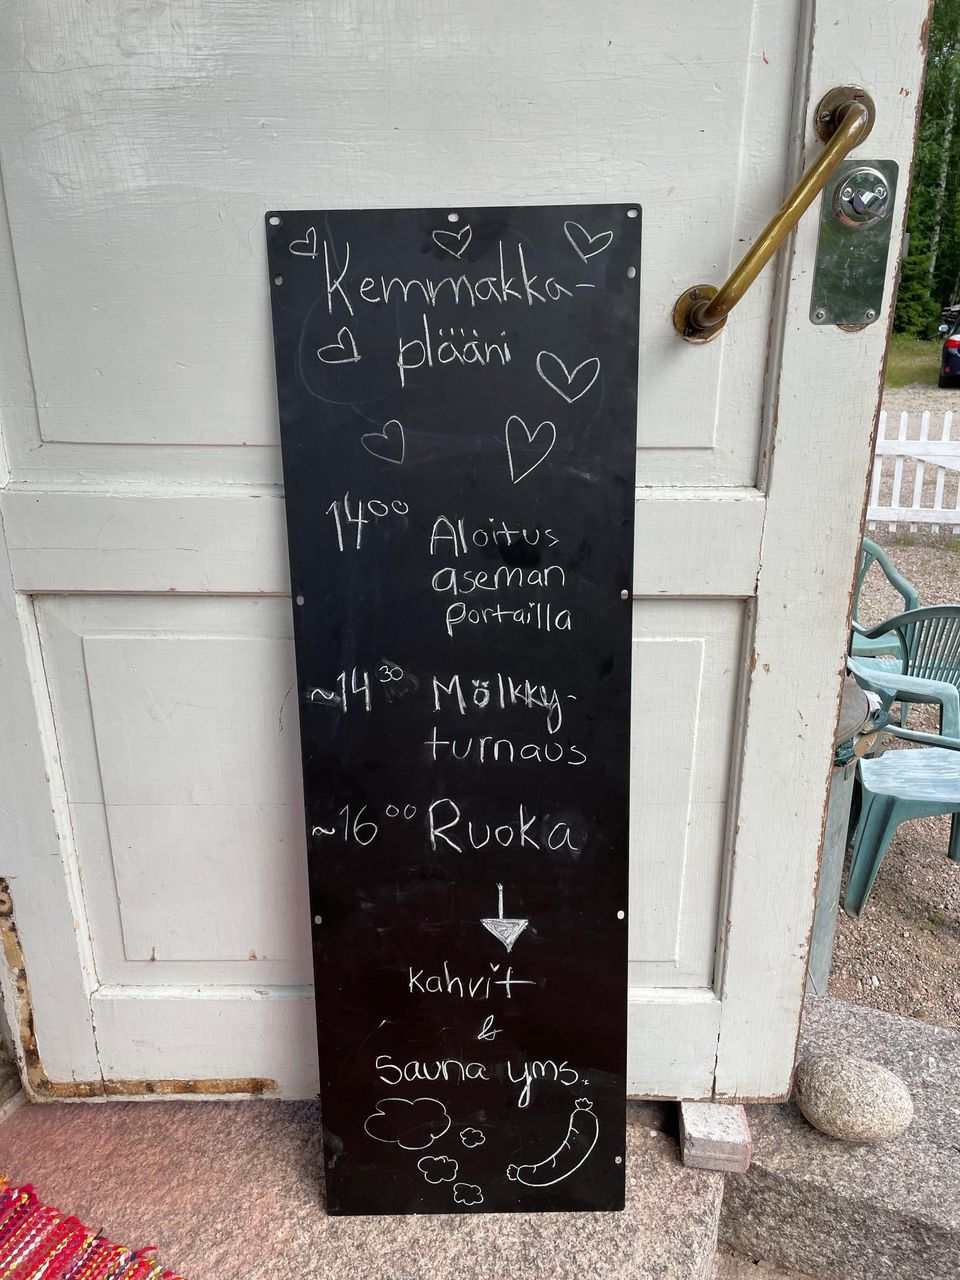 Kemmakka-
plääni
14⁰⁰ Aloitus
aseman
portailla
~14³⁰ Mölkky-
turnaus
~16⁰⁰ Ruoka
kahvit
&
Sauna yms.